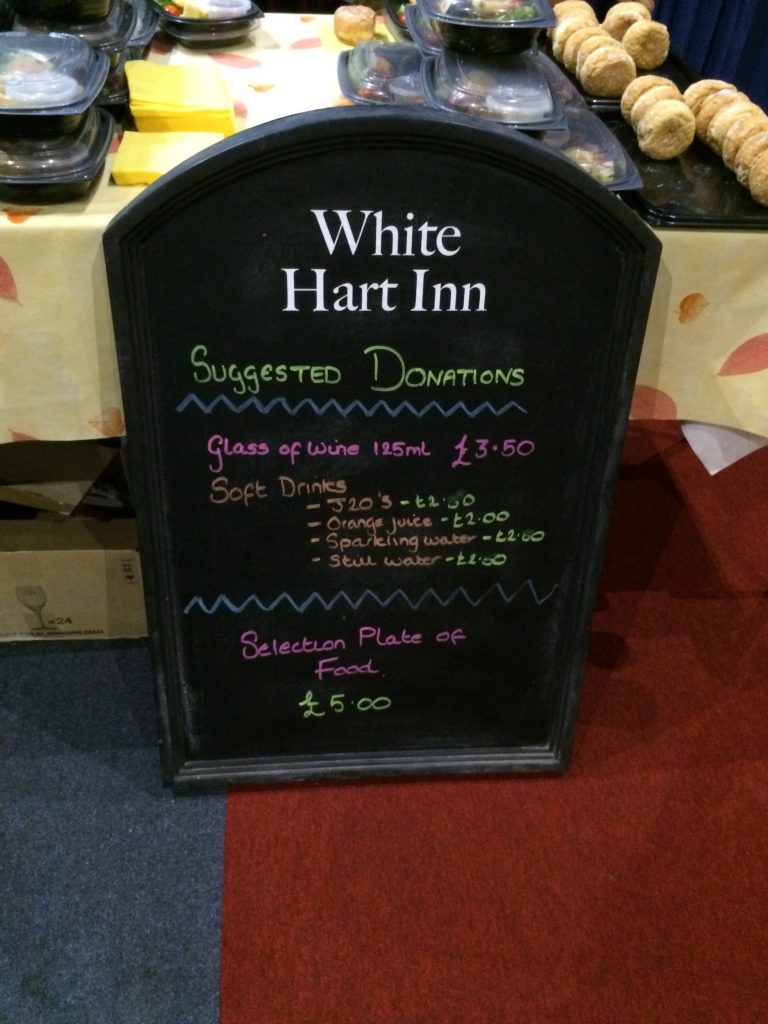 White
Hart Inn
SUGGESTED DONATIONS
Glass of wine 125ml £3.50
Soft Drinks
- J20's - £2.50
- Orange juice - £2.00
- Sparkling water - £2.00
- Still water - £2.00
Selection Plate of
Food.
£5.00
x24